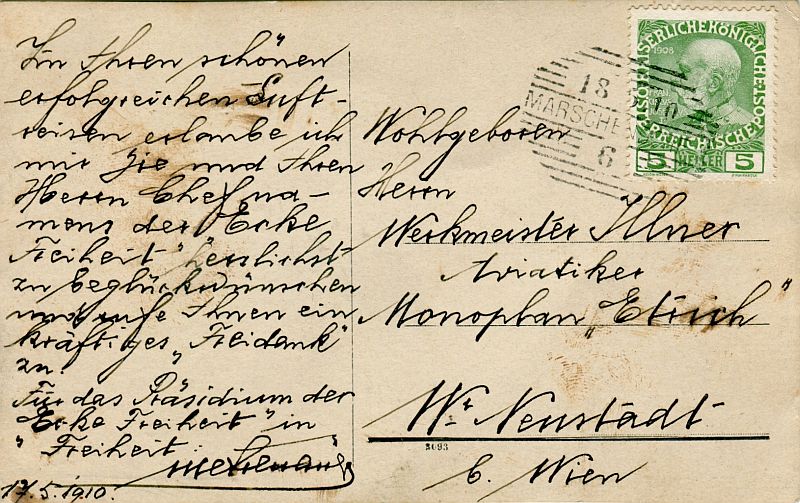 Zu Ihren schönen
erfolgreichen Luft-
reisen erlaube ich
mir Sie und Ihren
Herrn Chef na-
mens der „Ecke
Freiheit" herzlichst
zu beglückwünschen
und rufe Ihnen ein
kräftiges „Freidank"
zu.
Für das Präsidium der
„Ecke Freiheit" in
„Freiheit
17./5.1910.
Wohlgeboren
Herrn
Werkmeister Illner
Aviatiker
Monoplan „Etrich"
Wr. Neustadt
b. Wien
5093
18
MARSCHE
6
KAISERLICHE KÖNIGLICHE
ÖSTERREICHISCHE
1908
5 HELLER 5